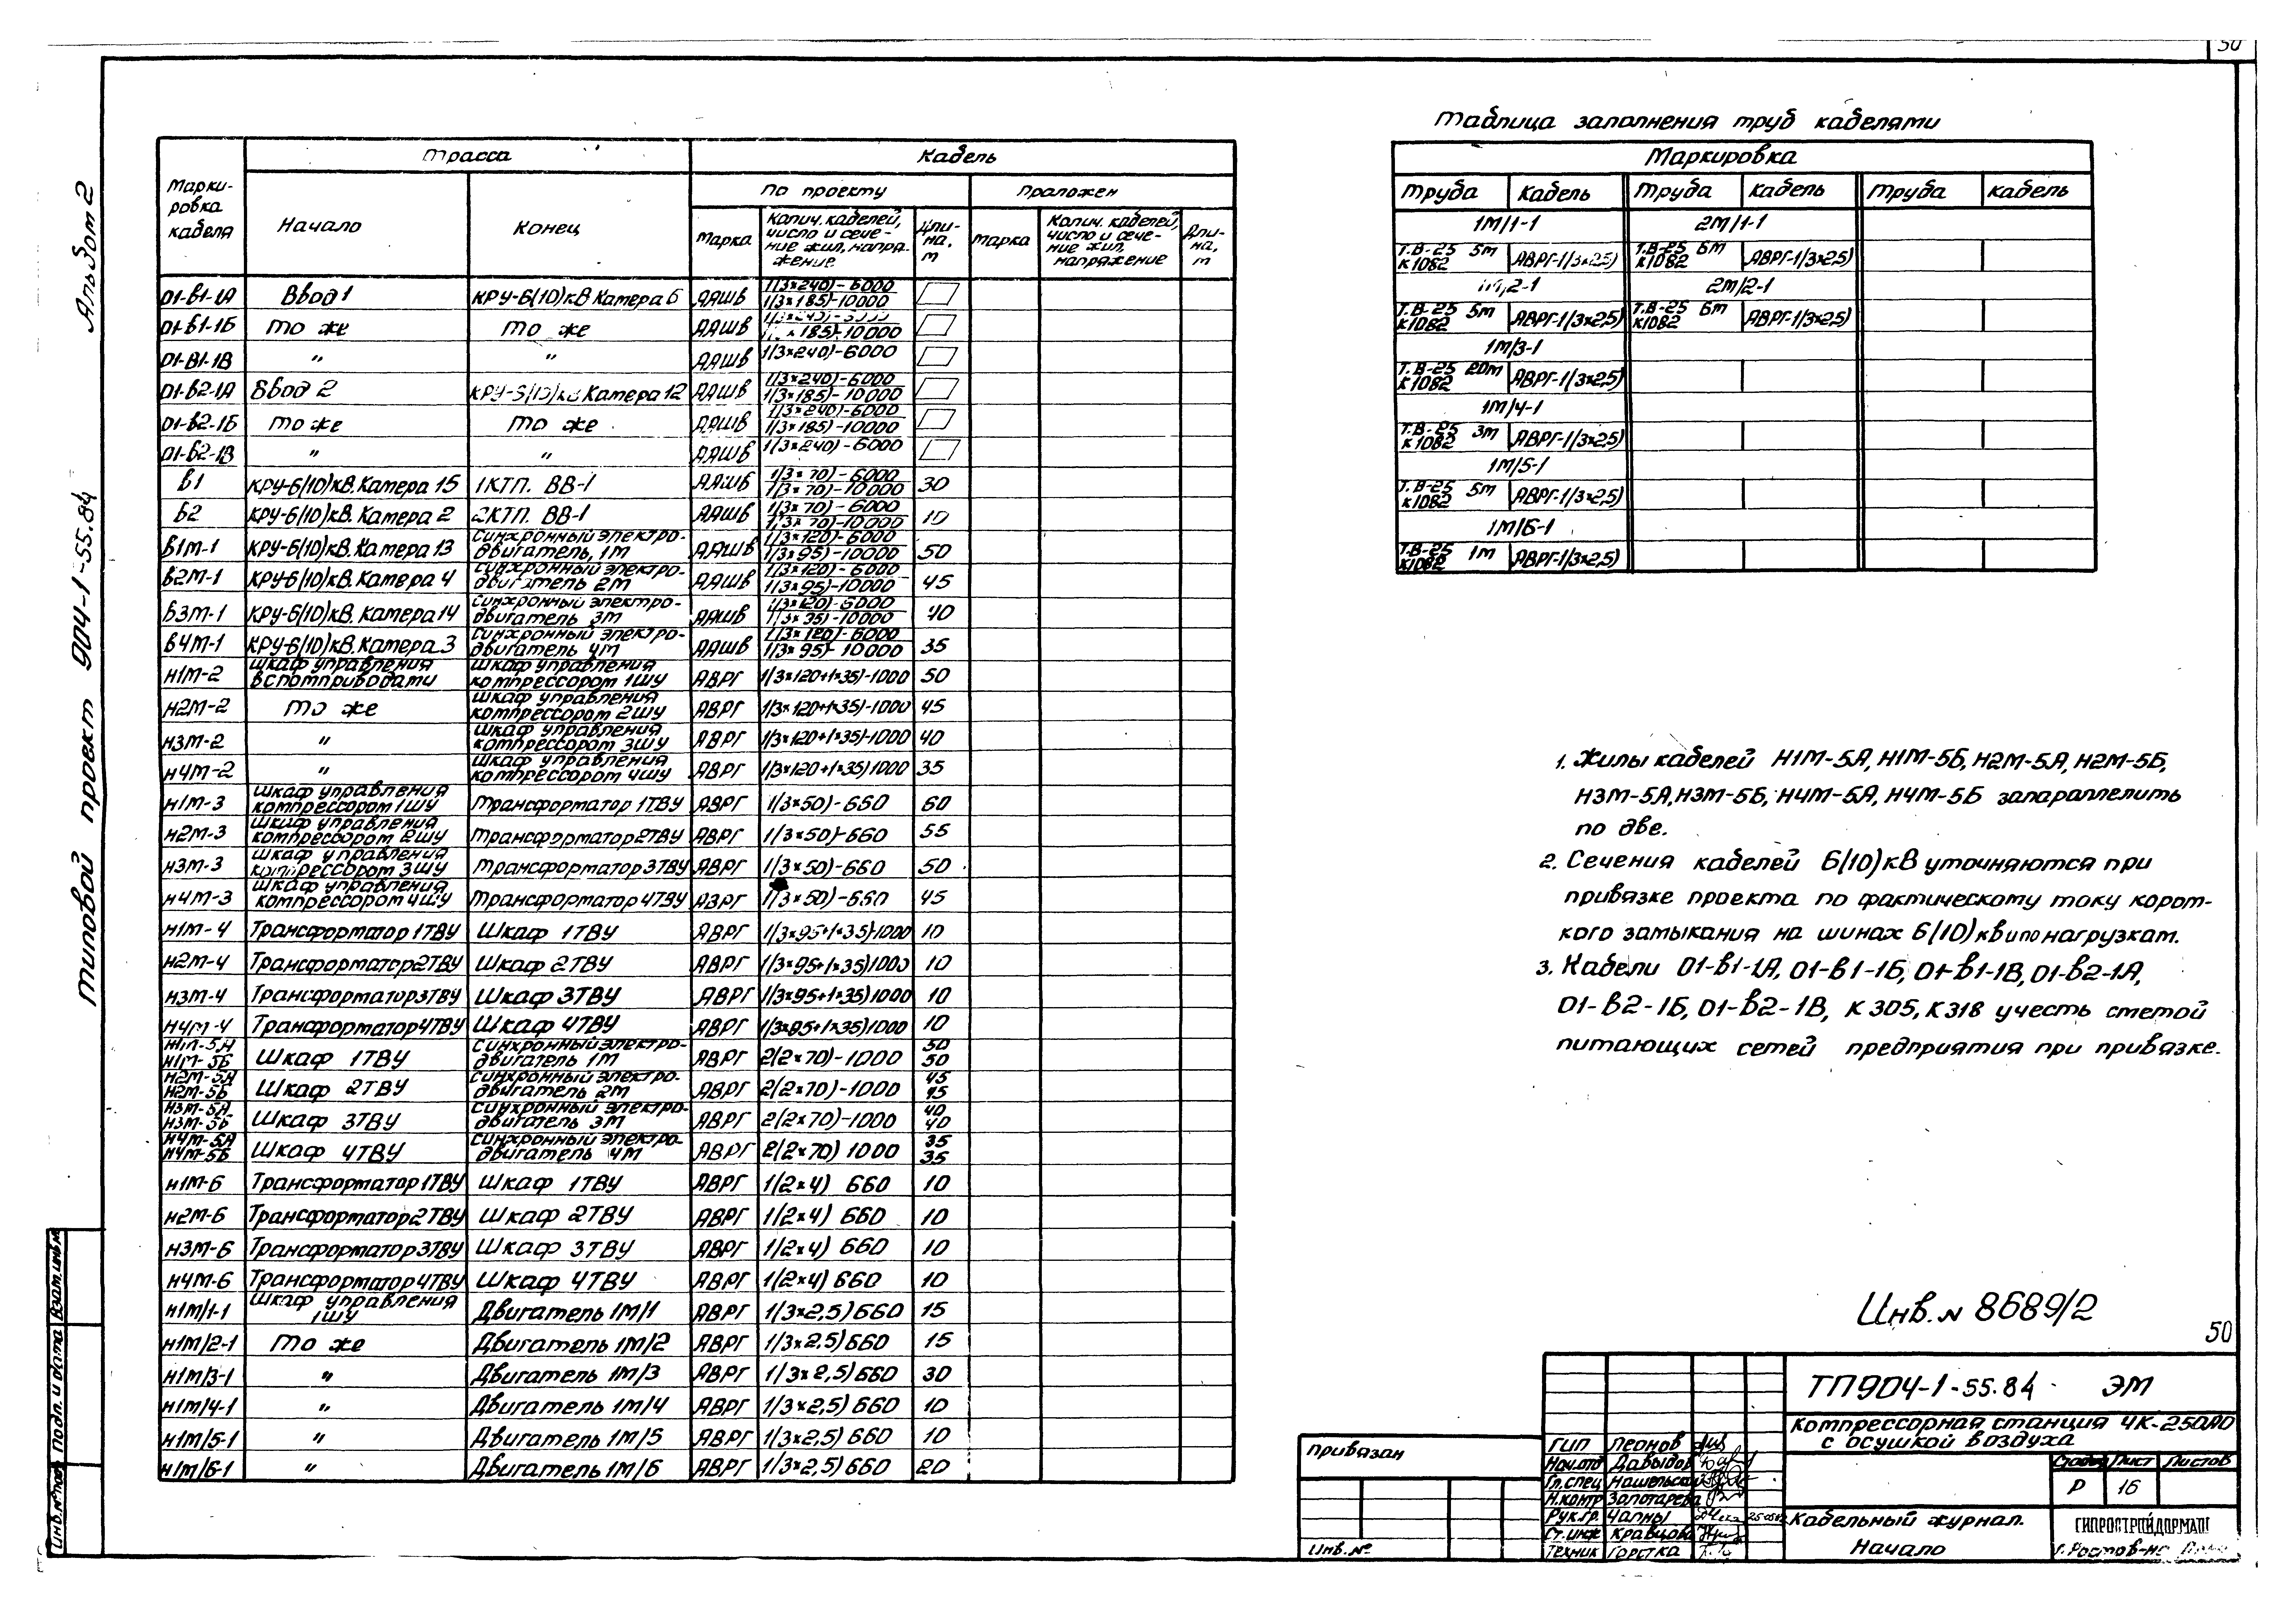 50
Альбом 2
Типовой проект 904-1-55.84
Марки-
ровка
кабеля
Трасса
Кабель
Начало
Конец
По проекту
Проложен
Марка
Колич. кабелей,
число и сече-
ние жил, напря-
жение
Дли-
на,
м
Марка
Колич. кабелей,
число и сече-
ние жил,
напряжение
Дли-
на,
м
01-В1-1А Ввод 1 КРУ-6(10)кВ Камера 6 ААШв 1(3×240)-6000 1(3×185)-10000
01-В1-1Б То же То же ААШв 1(3×185)-10000
01-В1-1В " " ААШв 1(3×240)-6000
01-В2-1А Ввод 2 КРУ-6(10)кВ Камера 12 ААШв 1(3×240)-6000 1(3×185)-10000
01-В2-1Б То же То же ААШв 1(3×240)-6000 1(3×185)-10000
01-В2-1В " " ААШв 1(3×240)-6000
В1 КРУ-6(10)кВ. Камера 15 1КТП. ВВ-1 ААШв 1(3×70)-6000 1(3×70)-10000 30
В2 КРУ-6(10)кВ. Камера 2 2КТП. ВВ-1 ААШв 1(3×70)-6000 1(3×70)-10000 10
В1М-1 КРУ-6(10)кВ. Камера 13 Синхронный электро-двигатель, 1М ААШв 1(3×120)-6000 1(3×95)-10000 50
В2М-1 КРУ-6(10)кВ. Камера 4 Синхронный электро-двигатель 2М ААШв 1(3×120)-6000 1(3×95)-10000 45
В3М-1 КРУ-6(10)кВ. Камера 14 Синхронный электро-двигатель 3М ААШв 1(3×120)-6000 1(3×95)-10000 40
В4М-1 КРУ-6(10)кВ. Камера 3 Синхронный электро-двигатель 4М ААШв 1(3×120)-6000 1(3×95)-10000 35
Н1М-2 Шкаф управления вспомприводами Шкаф управления компрессором 1ШУ АВРГ 1(3×120+1×35)-1000 50
Н2М-2 То же Шкаф управления компрессором 2ШУ АВРГ 1(3×120+1×35)-1000 45
Н3М-2 " Шкаф управления компрессором 3ШУ АВРГ 1(3×120+1×35)-1000 40
Н4М-2 " Шкаф управления компрессором 4ШУ АВРГ 1(3×120+1×35)1000 35
Н1М-3 Шкаф управления компрессором 1ШУ Трансформатор 1ТВУ АВРГ 1(3×50)-660 60
Н2М-3 Шкаф управления компрессором 2ШУ Трансформатор 2ТВУ АВРГ 1(3×50)-660 55
Н3М-3 Шкаф управления компрессором 3ШУ Трансформатор 3ТВУ АВРГ 1(3×50)-660 50
Н4М-3 Шкаф управления компрессором 4ШУ Трансформатор 4ТВУ АВРГ 1(3×50)-660 45
Н1М-4 Трансформатор 1ТВУ Шкаф 1ТВУ АВРГ 1(3×95+1×35)-1000 10
Н2М-4 Трансформатор 2ТВУ Шкаф 2ТВУ АВРГ 1(3×95+1×35)1000 10
Н3М-4 Трансформатор 3ТВУ Шкаф 3ТВУ АВРГ 1(3×95+1×35)1000 10
Н4М-4 Трансформатор 4ТВУ Шкаф 4ТВУ АВРГ 1(3×95+1×35)1000 10
Н1М-5А Н1М-5Б Шкаф 1ТВУ Синхронный электро-двигатель 1М АВРГ 2(2×70)-1000 50 50
Н2М-5А Н2М-5Б Шкаф 2ТВУ Синхронный электро-двигатель 2М АВРГ 2(2×70)-1000 45 45
Н3М-5А Н3М-5Б Шкаф 3ТВУ Синхронный электро-двигатель 3М АВРГ 2(2×70)-1000 40 40
Н4М-5А Н4М-5Б Шкаф 4ТВУ Синхронный электро-двигатель 4М АВРГ 2(2×70) 1000 35 35
Н1М-6 Трансформатор 1ТВУ Шкаф 1ТВУ АВРГ 1(2×4) 660 10
Н2М-6 Трансформатор 2ТВУ Шкаф 2ТВУ АВРГ 1(2×4) 660 10
Н3М-6 Трансформатор 3ТВУ Шкаф 3ТВУ АВРГ 1(2×4) 660 10
Н4М-6 Трансформатор 4ТВУ Шкаф 4ТВУ АВРГ 1(2×4) 660 10
Н1М/1-1 Шкаф управления 1ШУ Двигатель 1М/1 АВРГ 1(3×2,5) 660 15
Н1М/2-1 То же Двигатель 1М/2 АВРГ 1(3×2,5) 660 15
Н1М/3-1 " Двигатель 1М/3 АВРГ 1(3×2,5) 660 30
Н1М/4-1 " Двигатель 1М/4 АВРГ 1(3×2,5) 660 10
Н1М/5-1 " Двигатель 1М/5 АВРГ 1(3×2,5) 660 10
Н1М/6-1 " Двигатель 1М/6 АВРГ 1(3×2,5) 660 20
Таблица заполнения труб кабелями
Маркировка
Труба Кабель Труба Кабель Труба Кабель
1М/1-1 2М/1-1
Т.В-25 К1082 5м АВРГ-1(3×2,5) Т.В-25 К1082 6м АВРГ-1(3×2,5)
1М/2-1 2М/2-1
Т.В-25 К1082 5м АВРГ-1(3×2,5) Т.В-25 К1082 6м АВРГ-1(3×2,5)
1М/3-1
Т.В-25 К1082 20м АВРГ-1(3×2,5)
1М/4-1
Т.В-25 К1082 3м АВРГ-1(3×2,5)
1М/5-1
Т.В-25 К1082 5м АВРГ-1(3×2,5)
1М/6-1
Т.В-25 К1082 1м АВРГ-1(3×2,5)
1. Жилы кабелей Н1М-5А, Н1М-5Б, Н2М-5А, Н2М-5Б,
Н3М-5А, Н3М-5Б, Н4М-5А, Н4М-5Б запараллелить
по две.
2. Сечения кабелей 6(10)кВ уточняются при
привязке проекта по фактическому току корот-
кого замыкания на шинах 6(10)кВ и по нагрузкам.
3. Кабели 01-В1-1А, 01-В1-1Б, 01-В1-1В, 01-В2-1А,
01-В2-1Б, 01-В2-1В, К305, К318 учесть сметой
питающих сетей предприятия при привязке.
Инв.№ 8689/2
50
ТП904-1-55.84 ЭМ
Компрессорная станция 4К-250АО
с осушкой воздуха
Стадия Лист Листов
Р 16
Кабельный журнал.
Начало
ГИПРОСТРОЙДОРМАШ
г. Ростов-на-Дону
ГИП Леонов
Нач.отд Давыдов
Гл.спец Нашельский
Н.контр Золотарева
Рук.гр. Чапны
Ст.инж Кравцова
Техник Горстка
Привязан
Инв.№
Инв.№ подл. Подп. и дата Взам.инв.№